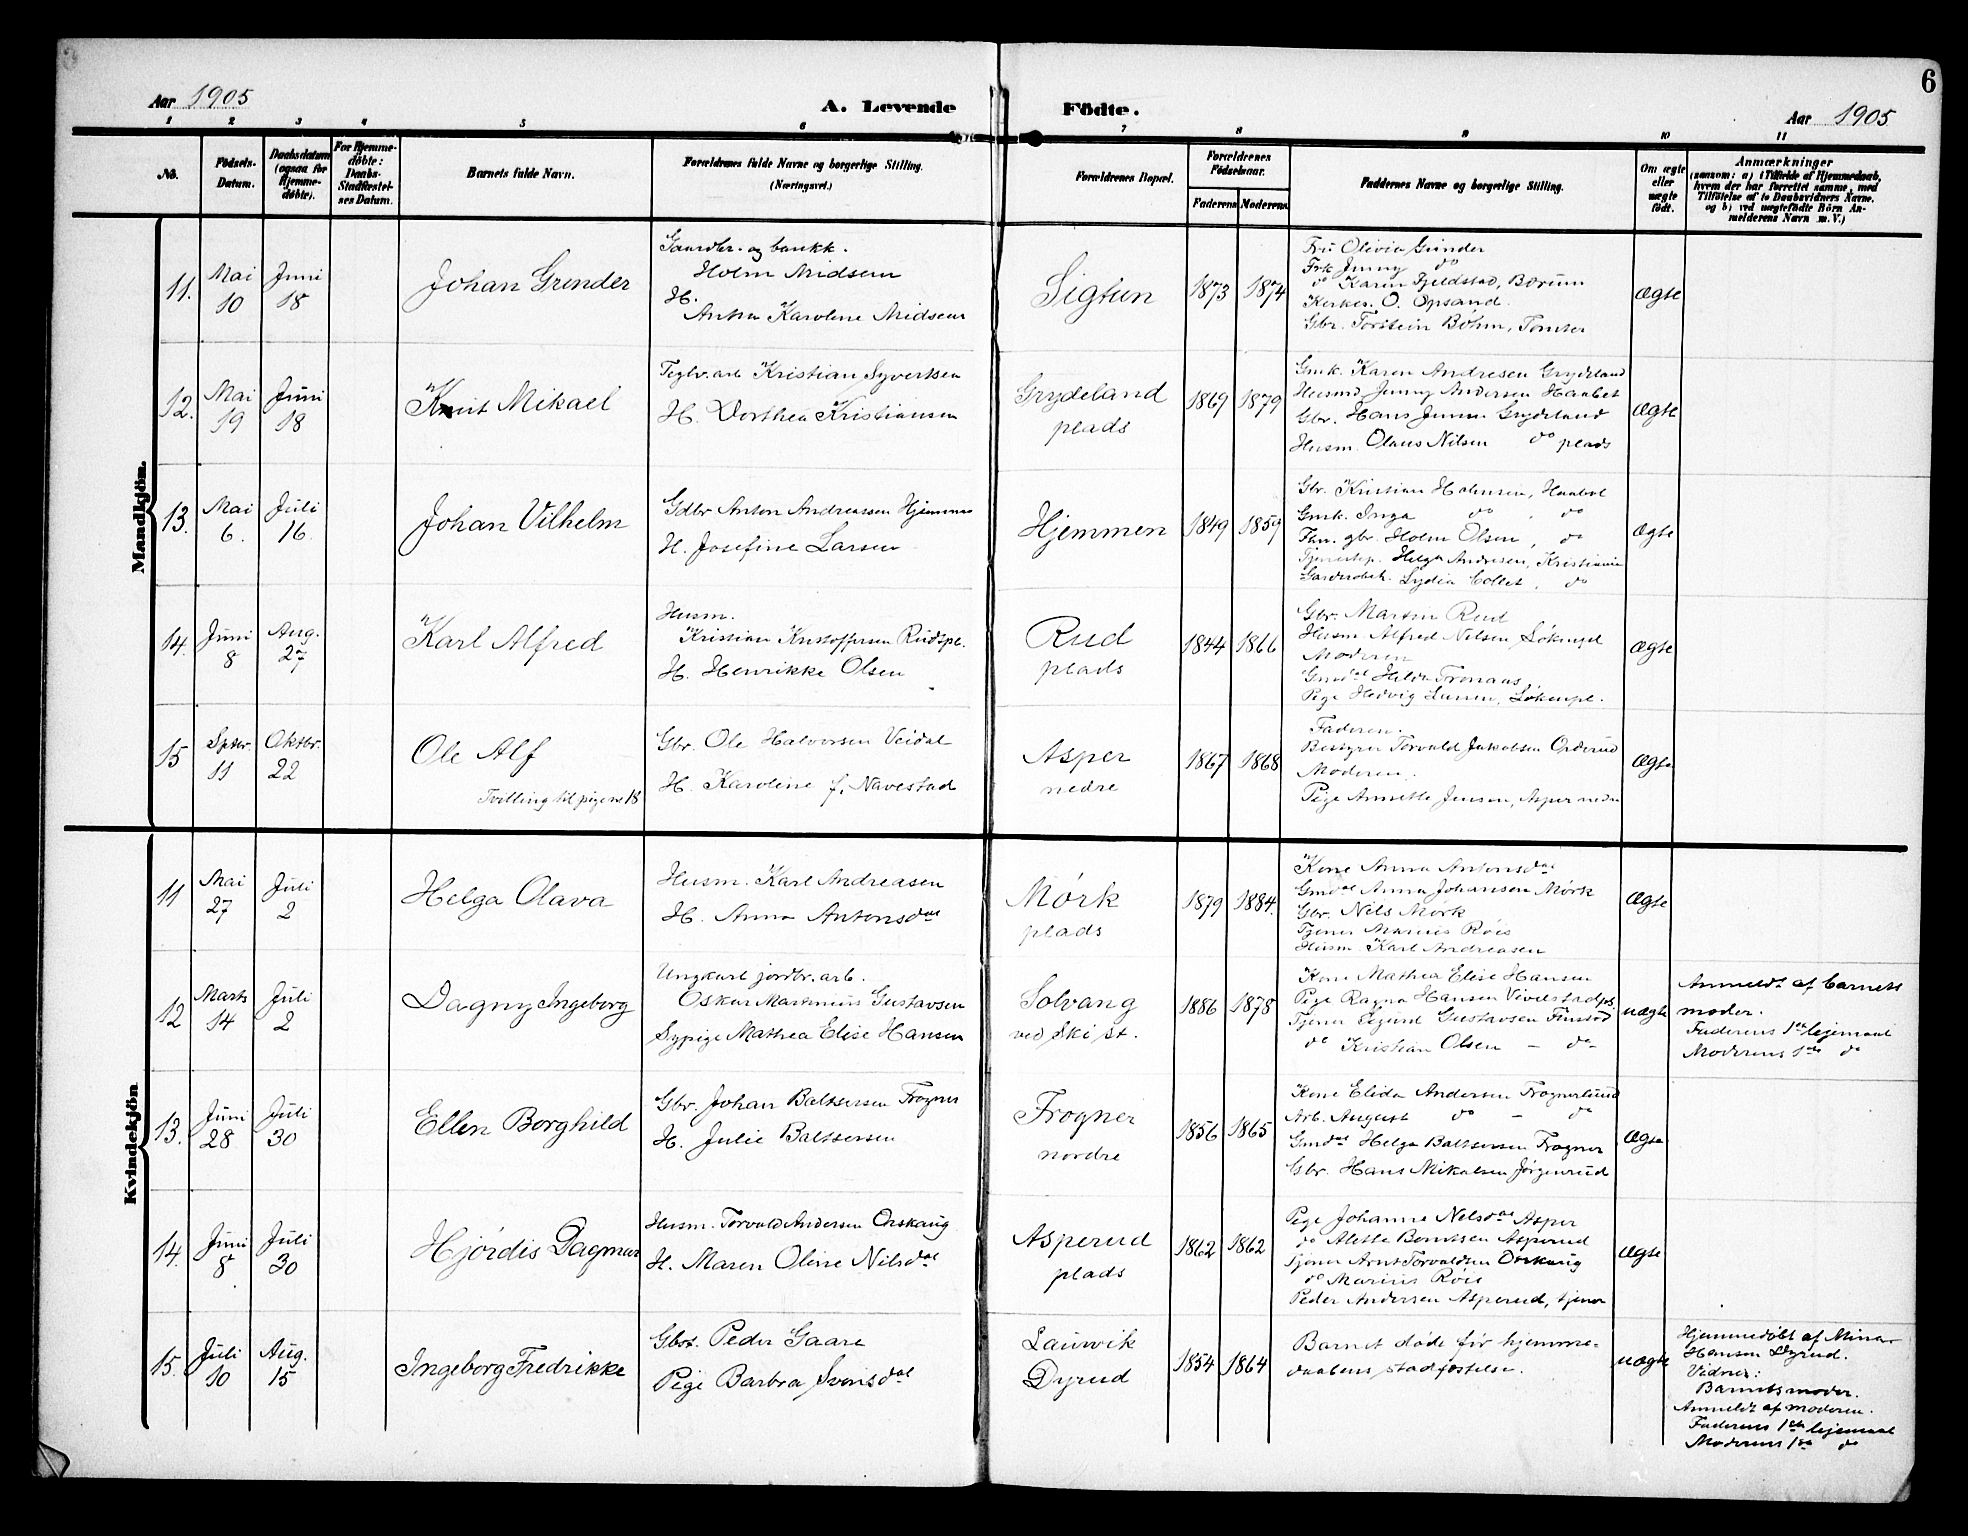 6
Aar 1905
A. Levende Födte.
Aar 1905
1 2 3 4 5 6 7 8 9 10 11
No.
Födsels-
Datum.
Daabsdatum
(ogsaa for
Hjemme-
döbte).
For Hjemme-
döbte:
Daabs-
Stadfæstel-
ses Datum.
Barnets fulde Navn.
Forældrenes fulde Navne og borgerlige Stilling.
(Næringsvei.)
Forældrenes Bopæl.
Forældrenes
Födselsaar.
Faderens Moderens
Faddernes Navne og borgerlige Stilling.
Om ægte
eller
uægte
født.
Anmærkninger
(saasom: a) i Tilfælde af Hjemmedaab,
hvem der har forrettet samme, med
Tilföielse af to Daabsvidners Navne.
og b) ved uægtefödte Börn An-
melderens Navn m. V.)
Mandkjön.
11.
Mai
10
Juni
18
Johan Grinder
Gaardbr. og bankk.
Holm Midsem
H.
Anna Karoline Midsem
Sigtun
1873 1874
Fru Olivia Grinder
Frk Jenny do
do Karen Fjeldstad, Borum
Kirkes. O. Opsand
Gbr. Torstein Bøhm, Tomter
Ægte
12.
Mai
19
Juni
18
Knut Mikael
Teglv. arb Kristian Syvertsen
H. Dorthea Kristiansen
Grydeland
plads
1869 1879
Gmk. Karen Andresen Grydeland
Husmd Jenny Andersen Haabet
Gbr. Hans Jensen Grydeland
Husm. Olaus Nilsen do plads
Ægte
13.
Mai
6.
Juli
16.
Johan Vilhelm
Gdbr Anton Andreassen Hjemmen
H. Josefine Larsen
Hjemmen
1849 1859
Gbr. Kristian Halvorsen, Haabøl
Gmk. Inga do , do
Fhn. gbr. Holm Olsen, do
Tjenestep. Helga Andresen, Kristiania
Lydia Collet, do
Ægte
14.
Juni
8
Aug.
27
Karl Alfred
Husm.
Kristian Kristoffersen Rudspl.
H. Henrikke Olsen
Rud
plads
1844 1866
Gbr. Martin Rud
Husm Alfred Nilsen Løkenpl
Moderen
Gmdat Hilda Tronaas,
Pige Hedvig Larsen, Løkenpl.
Ægte
15
Septer.
11
Oktbr.
22
Ole Alf
Tvilling til pigerne 18
Gbr. Ole Halvorsen Veidal
H. Karoline f. Navestad
Asper
nedre
1867 1868
Faderen.
Bestyrer Torvald Jakobsen Orderud
Moderen.
Pige Annette Jensen, Asper nedre
Ægte
Kvindekjön
11
Mai
27
Juli
2
Helga Olava
Husm. Karl Andreasen
H. Anna Antonsdat
Mørk
plads
1879 1884.
Kone Anna Antonsdat
Gmdat Anna Johansen Mørk
Gbr. Nils Mørk
Tjener Marius Røis
Husm. Karl Andreasen
Ægte
12
Marts
14
Juli
2
Dagny Ingeborg
Ungkarl jordbr. arb.
Oskar Martinius Gustavsen
Sypige Mathea Elise Hansen
Solvang
ved Ski st.
1886 1878
Kone Mathea Elise Hansen
Pige Ragna Hansen Vivelstadpl
Tjener Sigurd Gustavsen Finstad
do Kristian Olsen - do
uægte
Anmeldt af barnets
moder.
Faderens 1ste leiermaal
Moderens 1ste do
13.
Juni
28
Juli
30
Ellen Borghild
Gbr. Johan Baltsersen Frogner
H. Julie Baltsersen
Frogner
nordre
1856 1865
Kone Elida Andersen Frognerlund
Arb. August do - do
Gmdat Helga Baltsersen Frogner
Gbr. Hans Mikalsen Jørgenrud
Ægte
14.
Juni
8
Juli
30
Hjørdis Dagmar
Husm. Torvald Andersen Orskaug
H. Maren Oline Nilsdat
Asperud
plads
1862 1862
Pige Johanne Nelsdat Asper
do Alette Berntsen Asperud
Tjener Arnt Torvaldsen Orskaug
do Marius Røis
Peder Andersen Asperud, tjener
Ægte
15.
Juli
10
Aug.
15
Ingeborg Fredrikke
Gbr. Peder Gaare
Pige Barbra Svensdat
Laurvik
Dyrud
1854 1864
Barnet døde før hjemme-
daabens stadfæstelse.
uægte
Hjemmedøbt af Mina
Hansen Dyrud.
Vidner:
Barnets moder.
Anmeldt af moderen.
Faderens 1ste leiermaal
Moderens 1ste do